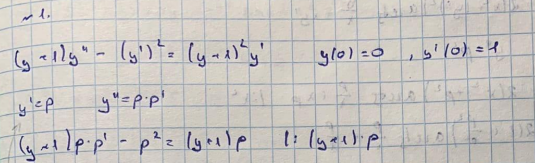 № 1.
(y+1)y'' - (y')² = (y+1)² y' y(0)=0 , y'(0)=1
y'=p y''=p·p'
(y+1)p·p' - p² = (y+1)p |: (y+1)·p